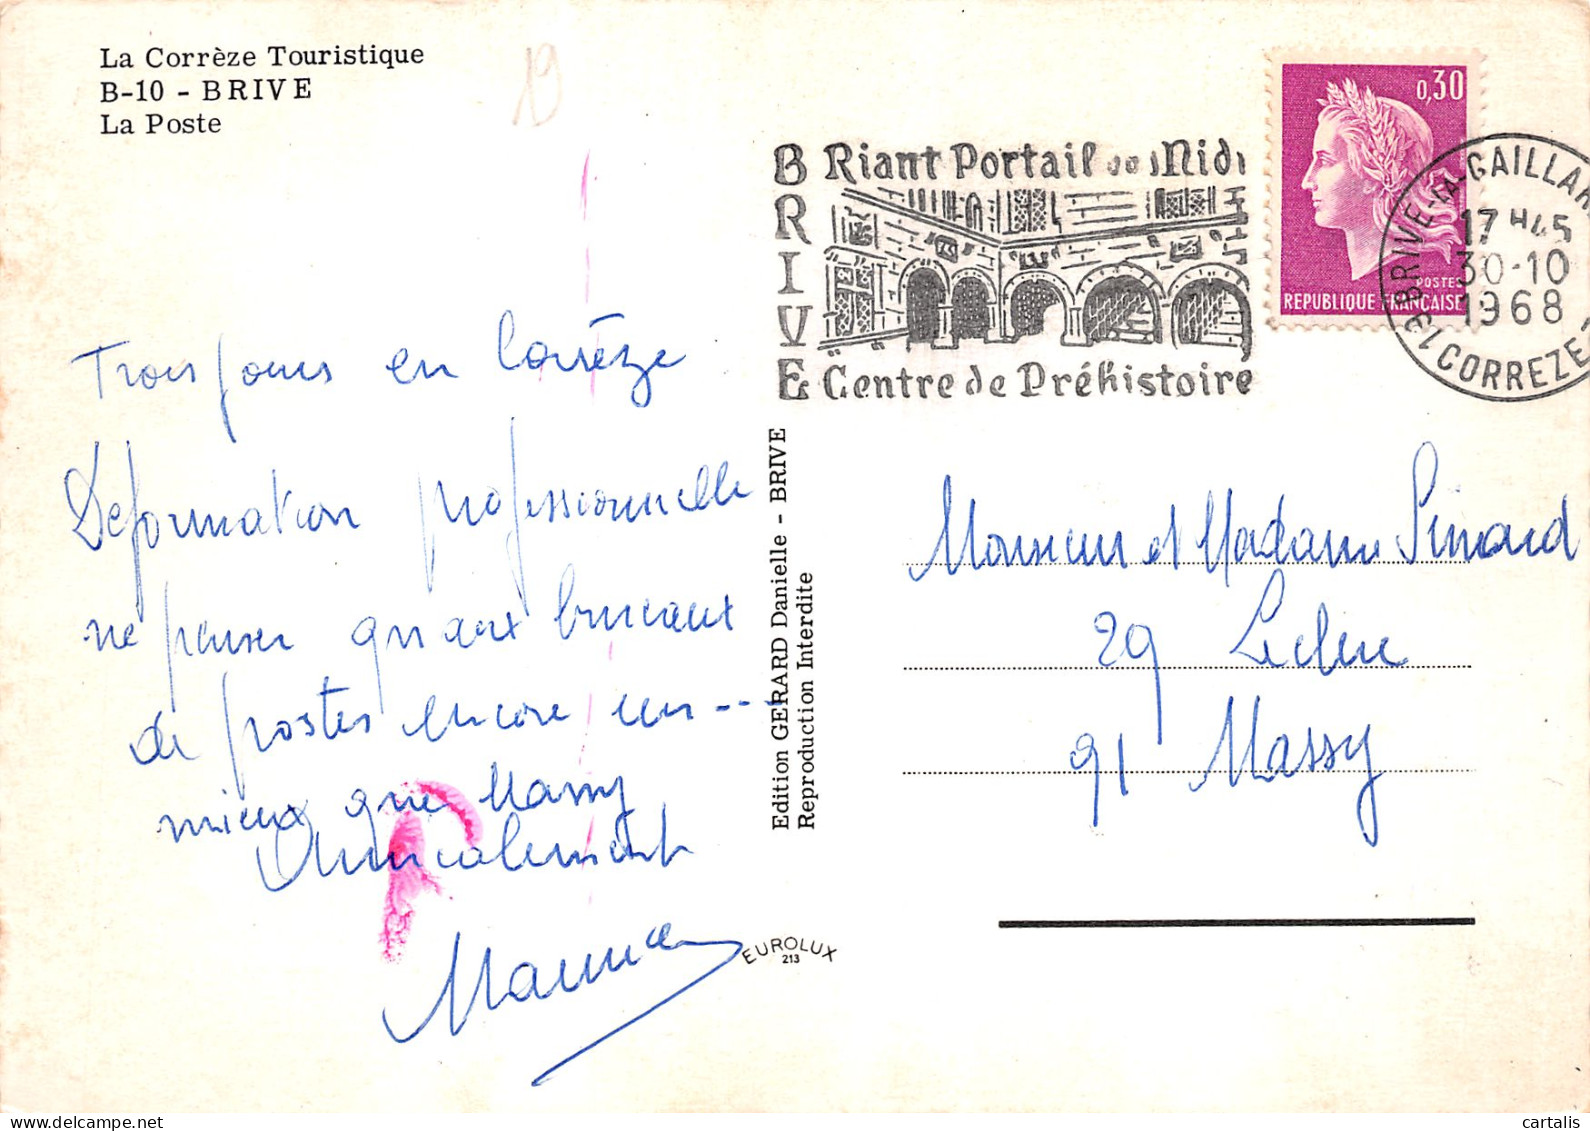 La Corrèze Touristique
B-10 - BRIVE
La Poste
19
BRIVE
Riant Portail du Midi
Centre de Préhistoire
0,30
POSTES
REPUBLIQUE FRANÇAISE
19 BRIVE-LA-GAILLAR
17 H45
30-10
1968
CORREZE
Trois jours en Corrèze
Déformation professionnelle
ne penser qu'aux bureaux
de postes encore un ---
mieux que Massy
Amicalement
Maurice
Edition GERARD Danielle - BRIVE
Reproduction Interdite
EUROLUX
213
Monsieur et Madame Pinard
29 Leclerc
91 Massy
cartalis